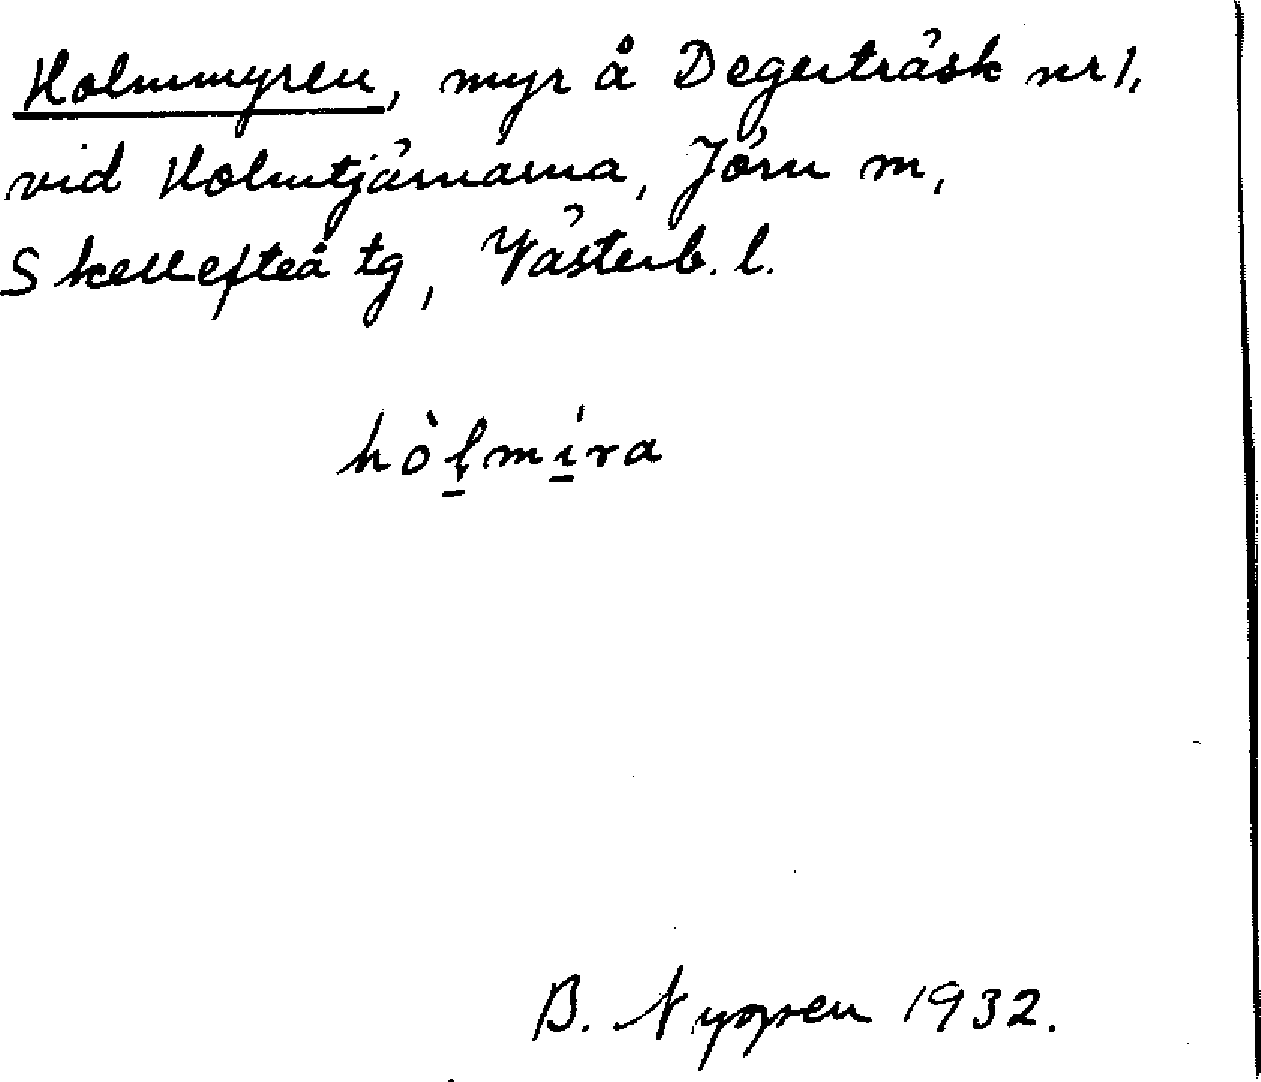 Holmmyren, myr å Degerträsk nr 1,
vid Holmtjärnarna, Jörn m,
Skellefteå tg, Västerb. l.
hòl̠mí̠ra
B. Nygren 1932.